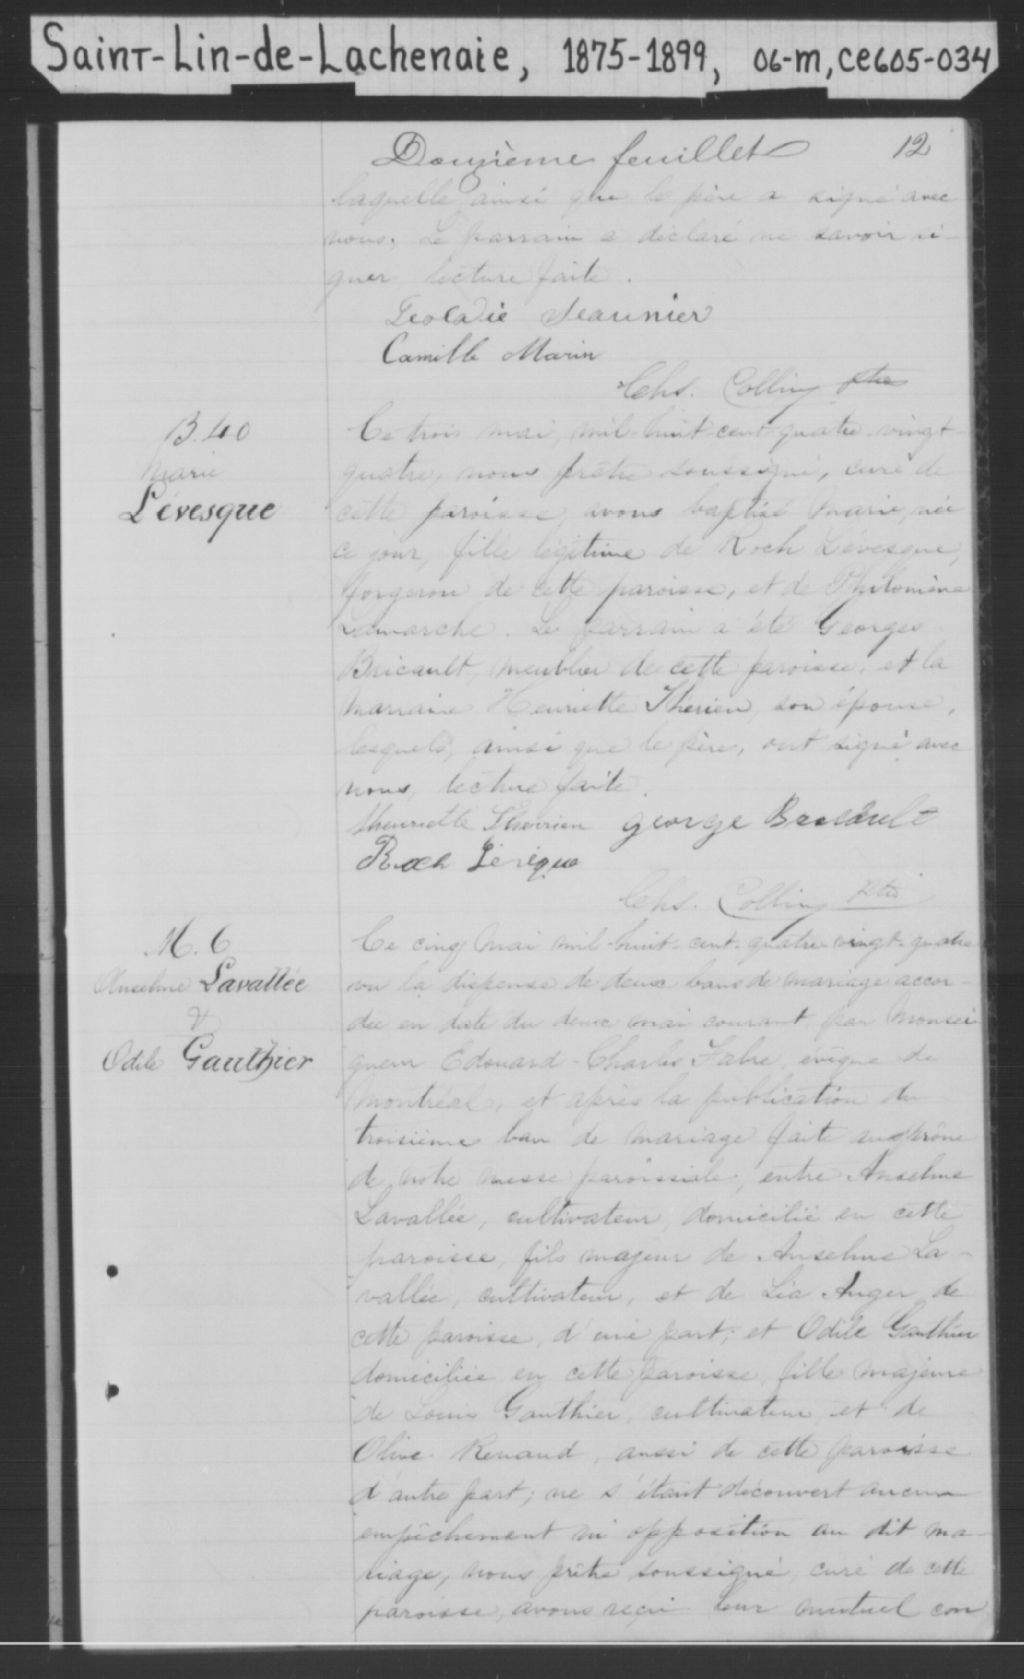 Saint-Lin-de-Lachenaie, 1875-1899, 06-m, CE605-034
Douzième feuillet 12
laquelle ainsi que le père a signé avec
nous. Le parrain a déclaré ne savoir si-
gner lecture faite.
Leocadie Jeaunier
Camille Marin
Chs. Collin ptre
B. 40
Marie
Lévesque
Ce trois mai, mil-huit cent-quatre-vingt-
quatre, nous prêtre soussigné, curé de
cette paroisse, avons baptisé Marie, née
ce jour, fille légitime de Roch Lévesque,
forgeron de cette paroisse, et de Philomène
Lamarche. Le parrain a été Georges
Bricault, meublier de cette paroisse, et la
marraine Henriette Therien, son épouse,
lesquels, ainsi que le père, ont signé avec
nous, lecture faite.
Henriette Therrien george
Roch
Chs. Collin ptre
M. 6
Anselme Lavallée
&
Odile Gauthier
Ce cinq Mai mil-huit-cent-quatre-vingt-quatre
vu la dispense de deux bans de mariage accor-
dée en date du deux mai courant par Monsei
gneur Edouard-Charles Fabre, évêque de
Montréal, et après la publication du
troisième ban de mariage faite au prône
de notre messe paroissiale, entre Anselme
Lavallée, cultivateur, domicilié en cette
paroisse, fils majeur de Anselme La-
vallée, cultivateur, et de Léa Auger de
cette paroisse, d'une part; et Odile Gauthier
domiciliée en cette paroisse, fille majeure
de Louis Gauthier, cultivateur, et de
Olive Renaud, aussi de cette paroisse
d'autre part; ne s'étant découvert aucun
empêchement ni opposition au dit ma-
riage, nous prêtre soussigné, curé de cette
paroisse, avons reçu leur mutuel con